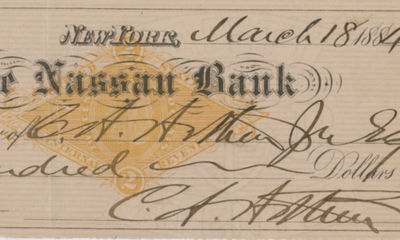 New York, March 18 1884
e Nassau Bank
of C. A. Arthur Jr Esq
undred Dollars
C. A. Arthur
2 2